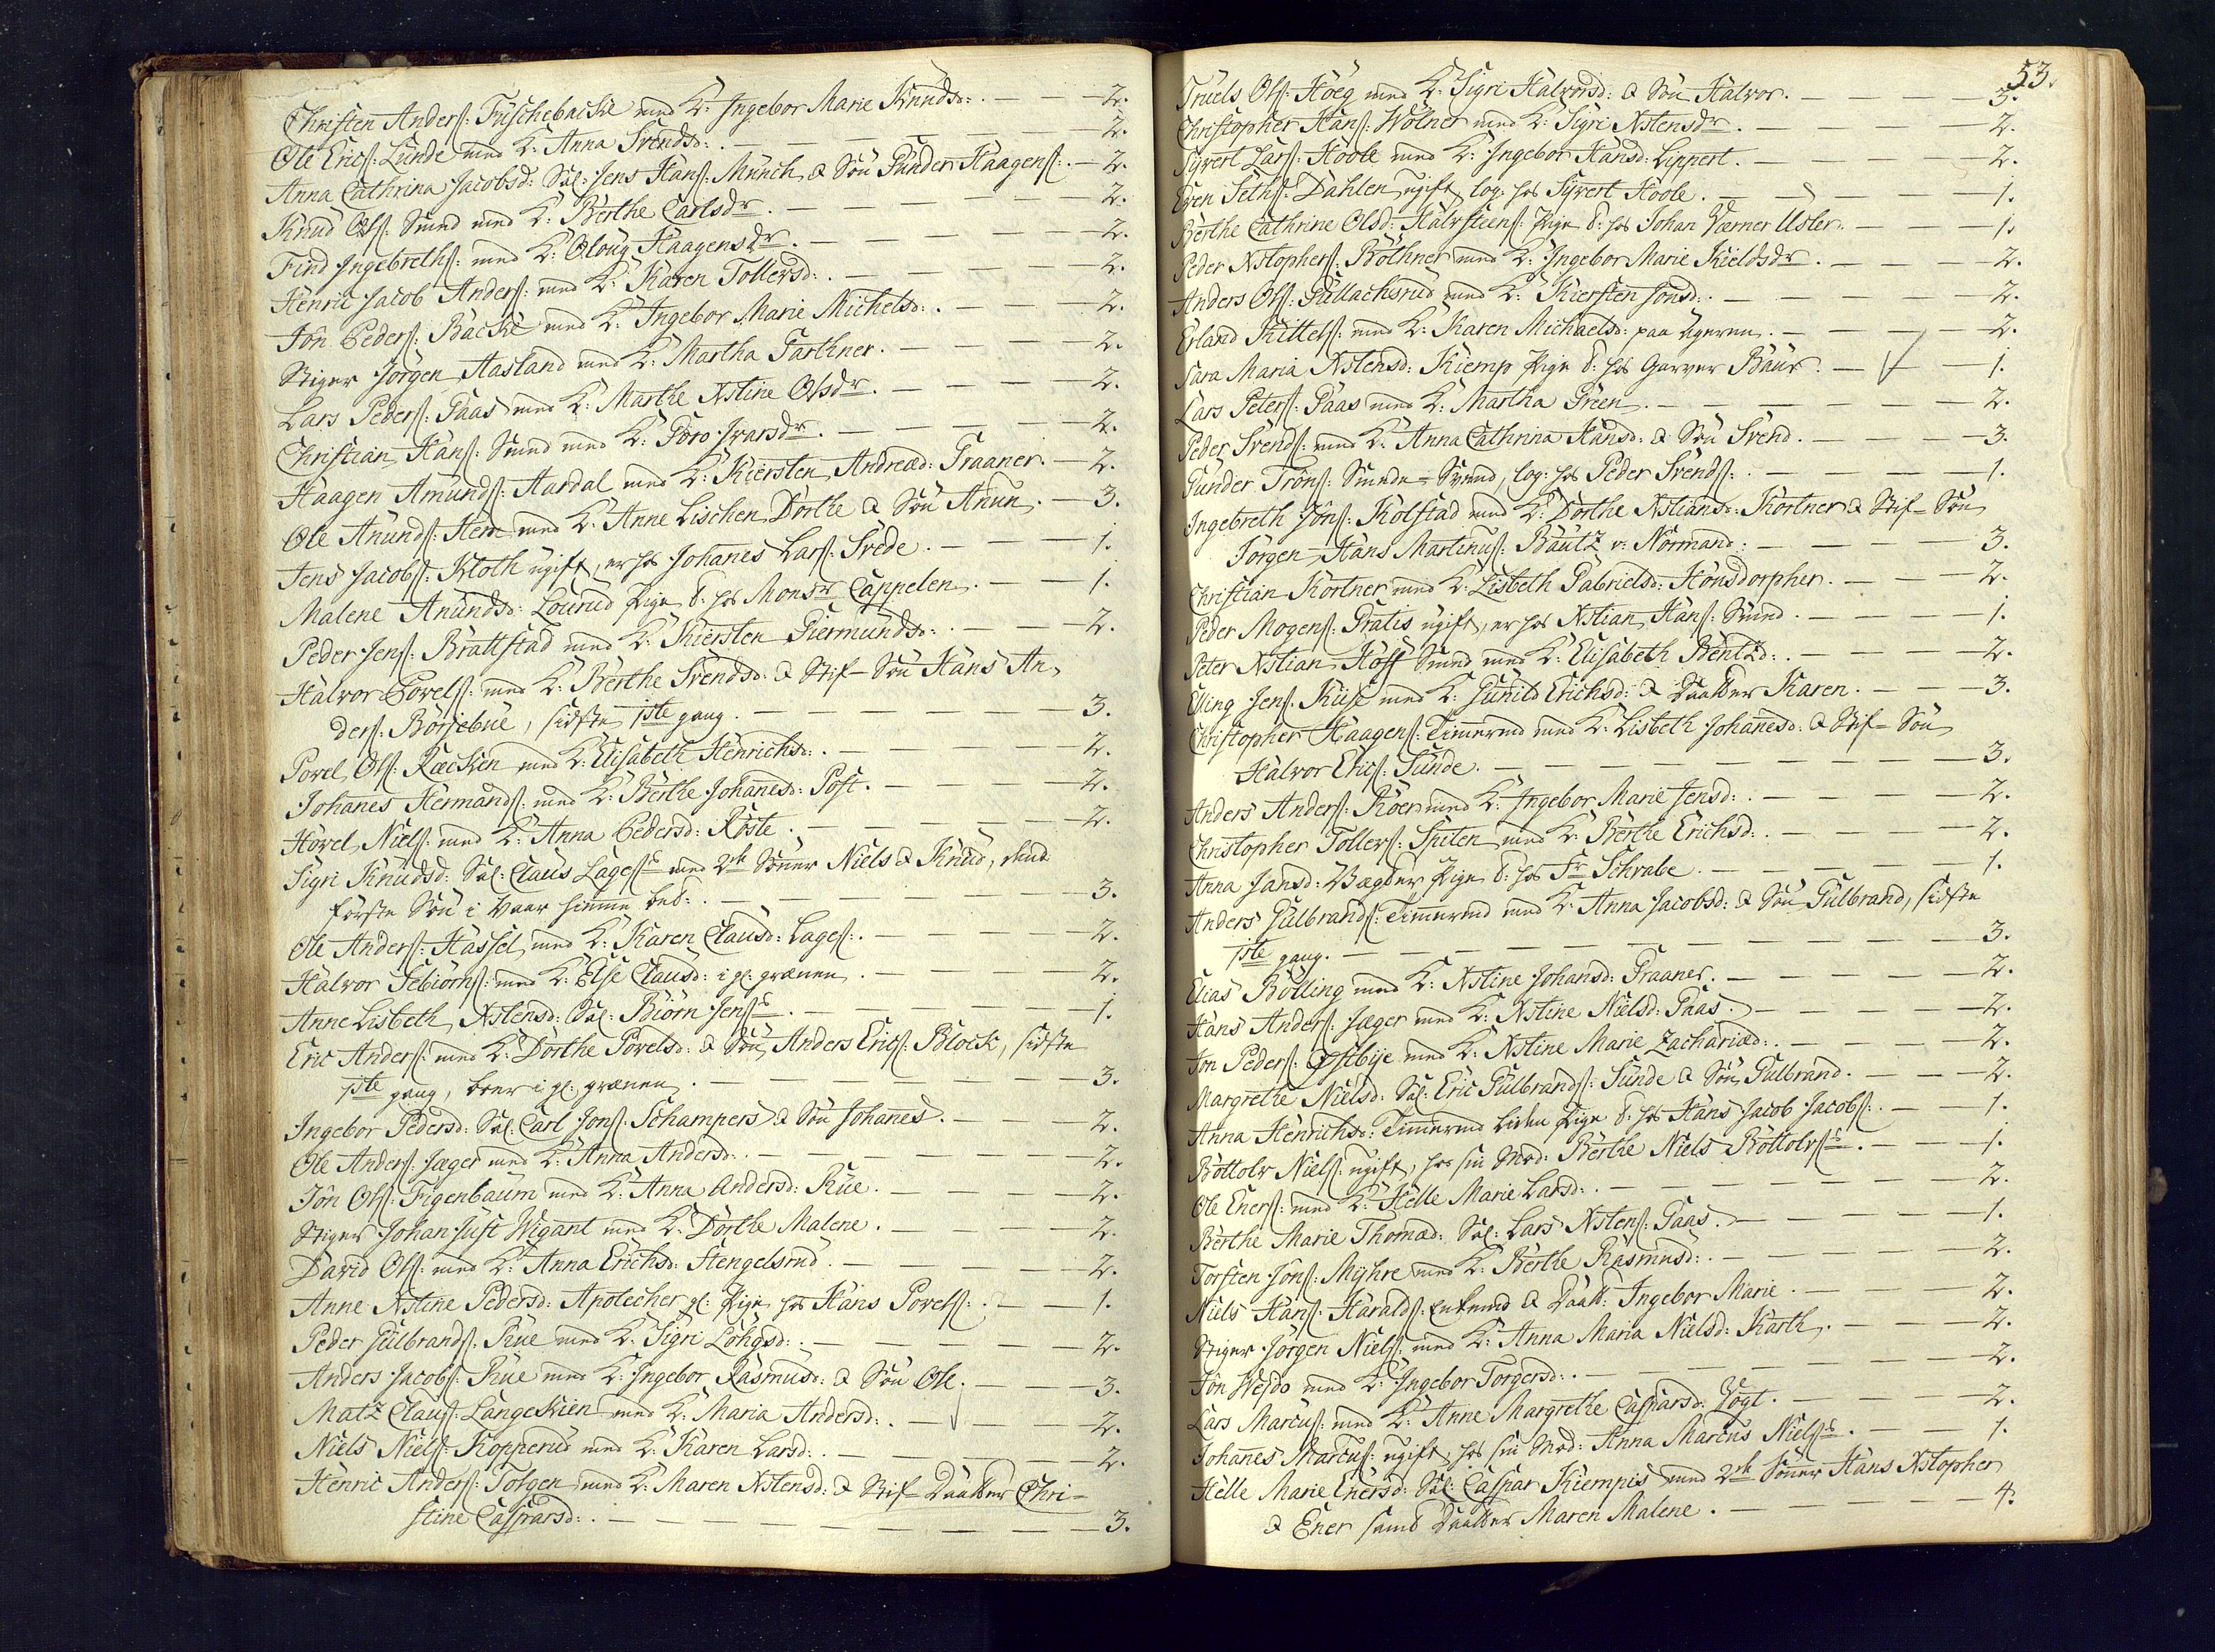 Christen Anders: Fuschebacke med K: Ingebor Marie Knuds: . — — 2.
Ole Erics: Lunde med K: Anna Svends: . — — — — 2.
Anna Cathrina Jacobsd: Sal: Jens Hans: Munch & Sön Gunder Haagens: . — 2.
Knud Ols: Smed med K: Berthe Carlsdr. — — — — 2.
Find Ingebreths: med K: Oloug Haagensdr. — — — — 2.
Henric Jacob Anders: med K: Karen Tollersd: . — — — — 2.
Jon Peders: Backe med K: Ingebor Marie Michelsd: . — — — 2.
Stiger Jörgen Aasland med K: Martha Garthner. — — — 2.
Lars Peders: Gaas med K: Marthe Xstine Olsdr. — — — 2.
Christian Hans: Smed med K: Goro Ivarsdr. — — — — 2.
Haagen Amunds: Aardal med K: Kiersten Andread: Graaner. — 2.
Ole Anunds: Hem med K: Anne Lischen Dorthe & Sön Anun. — 3.
Jens Jacobs: Kloth ugift, er hos Johanes Lars: Svede. — — — 1.
Malene Anundsd: Lourud Pige t: hos Monsr Cappelen. — — 1.
Peder Jens: Brattstad med K: Kiersten Giermundsd: . — — — 2.
Halvor Povels: med K: Berthe Svendsd: & Stif-Sön Hans An
ders: Börjebue, sidste 1ste gang. — — — — — 3.
Povel Ols: Kæcken med K: Elisabeth Henrichsd: . — — — — 2.
Johanes Hermands: med K: Berthe Johanesd: Post. — — — 2.
Hovel Niels: med K: Anna Pedersd: Röste. — — — — 2.
Sigri Knudsd: Sal: Claus Lages: med 2de Sönner Niels & Knud,
förste Sön i Vaar hiemme bet: . — — — — — 3.
Ole Anders: Hassel med K: Karen Clausd: Lages: . — — — 2.
Halvor Tebiörns: med K: Else Clausd: i gl: grænen. — — — 2.
Anne Lisbeth Xstensd: Sal: Biörn Jens: — — — — 1.
Eric Anders: med K: Dorthe Povelsd: & Sön Anders Erics: Block, sidste
1ste gang, boer i gl: grænen. — — — — — 3.
Ingebor Pedersd: Sal: Carl Jons: Schampers & Sön Johanes. — — 2.
Ole Anders: Jæger med K: Anna Andersd: . — — — — 2.
Jon Ols: Figenbaum med K: Anna Andersd: Rue. — — — 2.
Stiger Johan Just Wigant med K: Dorthe Malene. — — — 2.
David Ols: med K: Anna Erichsd: Hengelsrud. — — — — 2.
Anne Xstine Pedersd: Apotecher gl: Pige hos Hans Povels: . — — 1.
Peder Gulbrands: Rue med K: Sigri Löhgsd: . — — — — 2.
Anders Jacobs: Rue med K: Ingebor Rasmusd: & Sön Ole. — — — 3.
Matz Claus: Langeskien med K: Maria Andersd: . — — — 2.
Niels Niels: Kopperud med K: Karen Larsd: . — — — — 2.
Henric Anders: Torgen med K: Maren Xstensd: & Stif-Daatter Chri-
stine Caspersd: . — — — — — — 3.
53.
Truels Ols: Höeg med K: Sigri Halvorsd: & Sön Halvor. — — — 3.
Christopher Hans: Wölner med K: Sigri Xstensdr. — — — 2.
Syvert Lars: Hoole med K: Ingebor Hansd: Lippert. — — — 2.
Even Seths: Dahlen ugift, log: hos Syvert Hoole. — — — 1.
Berthe Cathrine Olsd: Halvsteens: Pige t: hos Johan Værner Usler. — — 1.
Peder Xstophers: Böthner med K: Ingebor Marie Kieldsdr. — — — 2.
Anders Ols: Gullachsrud med K: Kiersten Jonsd: . — — — — 2.
Erland Kittels: med K: Karen Michaelsd: paa Ageren. — — — 2.
Sara Maria Xstensd: Kiemp Pige t: hos Garver Baur. — — — 1.
Lars Peters: Gaas med K: Martha Green. — — — — 2.
Peder Svends: med K: Anna Cathrina Hansd: & Sön Svend. — — — 3.
Gunder Trons: Smede-Svend, log: hos Peder Svends: . — — — 1.
Ingebreth Jons: Kolstad med K: Dorthe Xstiansd: Kortner & Stif-Sön
Jörgen Hans Martinus: Bautz v: Normand: . — — — 3.
Christian Kortner med K: Lisbeth Gabrielsd: Honsdorpher. — — — 2.
Peder Mogens: Gratis ugift, er hos Xstian Hans: Smed. — — — 1.
Peter Xstian Hoff Smed med K: Elisabeth Bentzd: . — — — 2.
Elling Jens: Kuse med K: Gunild Erichsd: & Daatter Karen. — — 3.
Christopher Haagens: Timermd med K: Lisbeth Johanesd: & Stif-Sön
Halvor Erics: Sunde. — — — — — — 3.
Anders Anders: Roer med K: Ingebor Marie Jensd: . — — — 2.
Christopher Tollers: Spiten med K: Berthe Erichsd: . — — — 2.
Anna Jansd: Vægter Pige t: hos Fr Schrabe. — — — — 1.
Anders Gulbrands: Timermd med K: Anna Jacobsd: & Sön Gulbrand, sidste
1ste gang. — — — — — — — 3.
Elias Bölling med K: Xstine Johansd: Graaner. — — — — 2.
Hans Anders: Jæger med K: Xstine Nielsd: Gaas. — — — — 2.
Jon Peders: Østbije med K: Xstine Marie Zachariæd: . — — — 2.
Margrethe Nielsd: Sal: Eric Gulbrands: Sunde & Sön Gulbrand. — — 2.
Anna Henrichsd: Timermd liden Pige t: hos Hans Jacob Jacobs: . — 1.
Bottolv Niels: ugift, hos sin Mod: Berthe Niels Bottolvs: . — — 1.
Ole Eners: med K: Helle Marie Larsd: . — — — — — 2.
Berthe Marie Thomæd: Sal: Lars Xstens: Gaas. — — — — 1.
Torsten Jons: Mijhre med K: Berthe Rasmusd: . — — — — 2.
Niels Hans: Haralds: Enkemd & Daatt: Ingebor Marie. — — — 2.
Stiger Jörgen Niels: med K: Anna Maria Nielsd: Karth. — — — 2.
Jon Wesdo med K: Ingebor Torgersd: . — — — — — 2.
Lars Marcus: med K: Anne Margrethe Caspersd: Vogt. — — — 2.
Johanes Marcus: ugift, hos sin Mod: Anna Marcus Niels: . — — 1.
Helle Marie Enersd: Sal: Caspar Kiempes med 2de Sönner Hans Xstopher
& Ener samt Daatter Maren Malene. — — — — 4.